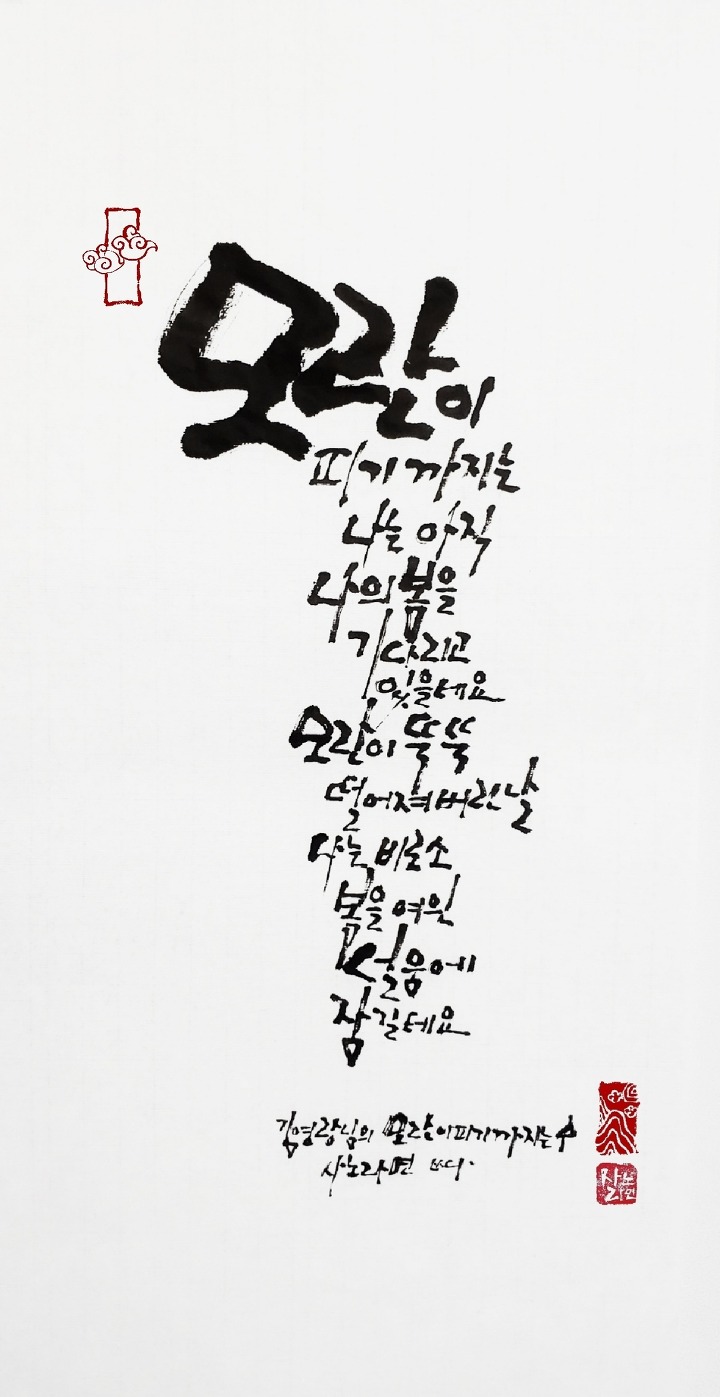 모란이
피기까지는
나는 아직
나의 봄을
기다리고
있을테요
모란이 뚝뚝
떨어져버린날
나는 비로소
봄을 여읜
설움에
잠길테요
김영랑님의 모란이피기까지는 中
사노라면 쓰다.
사노
라면